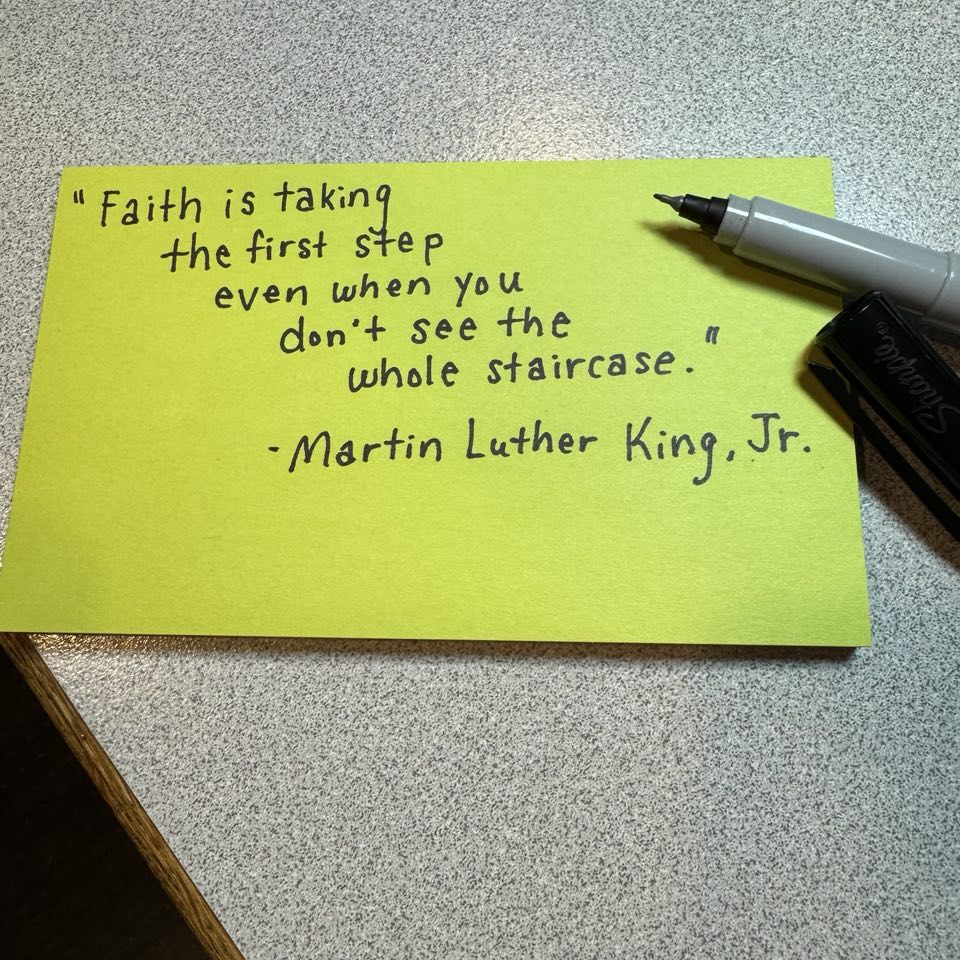 "Faith is taking
the first step
even when you
don't see the
whole staircase."
-Martin Luther King, Jr.
Sharpie